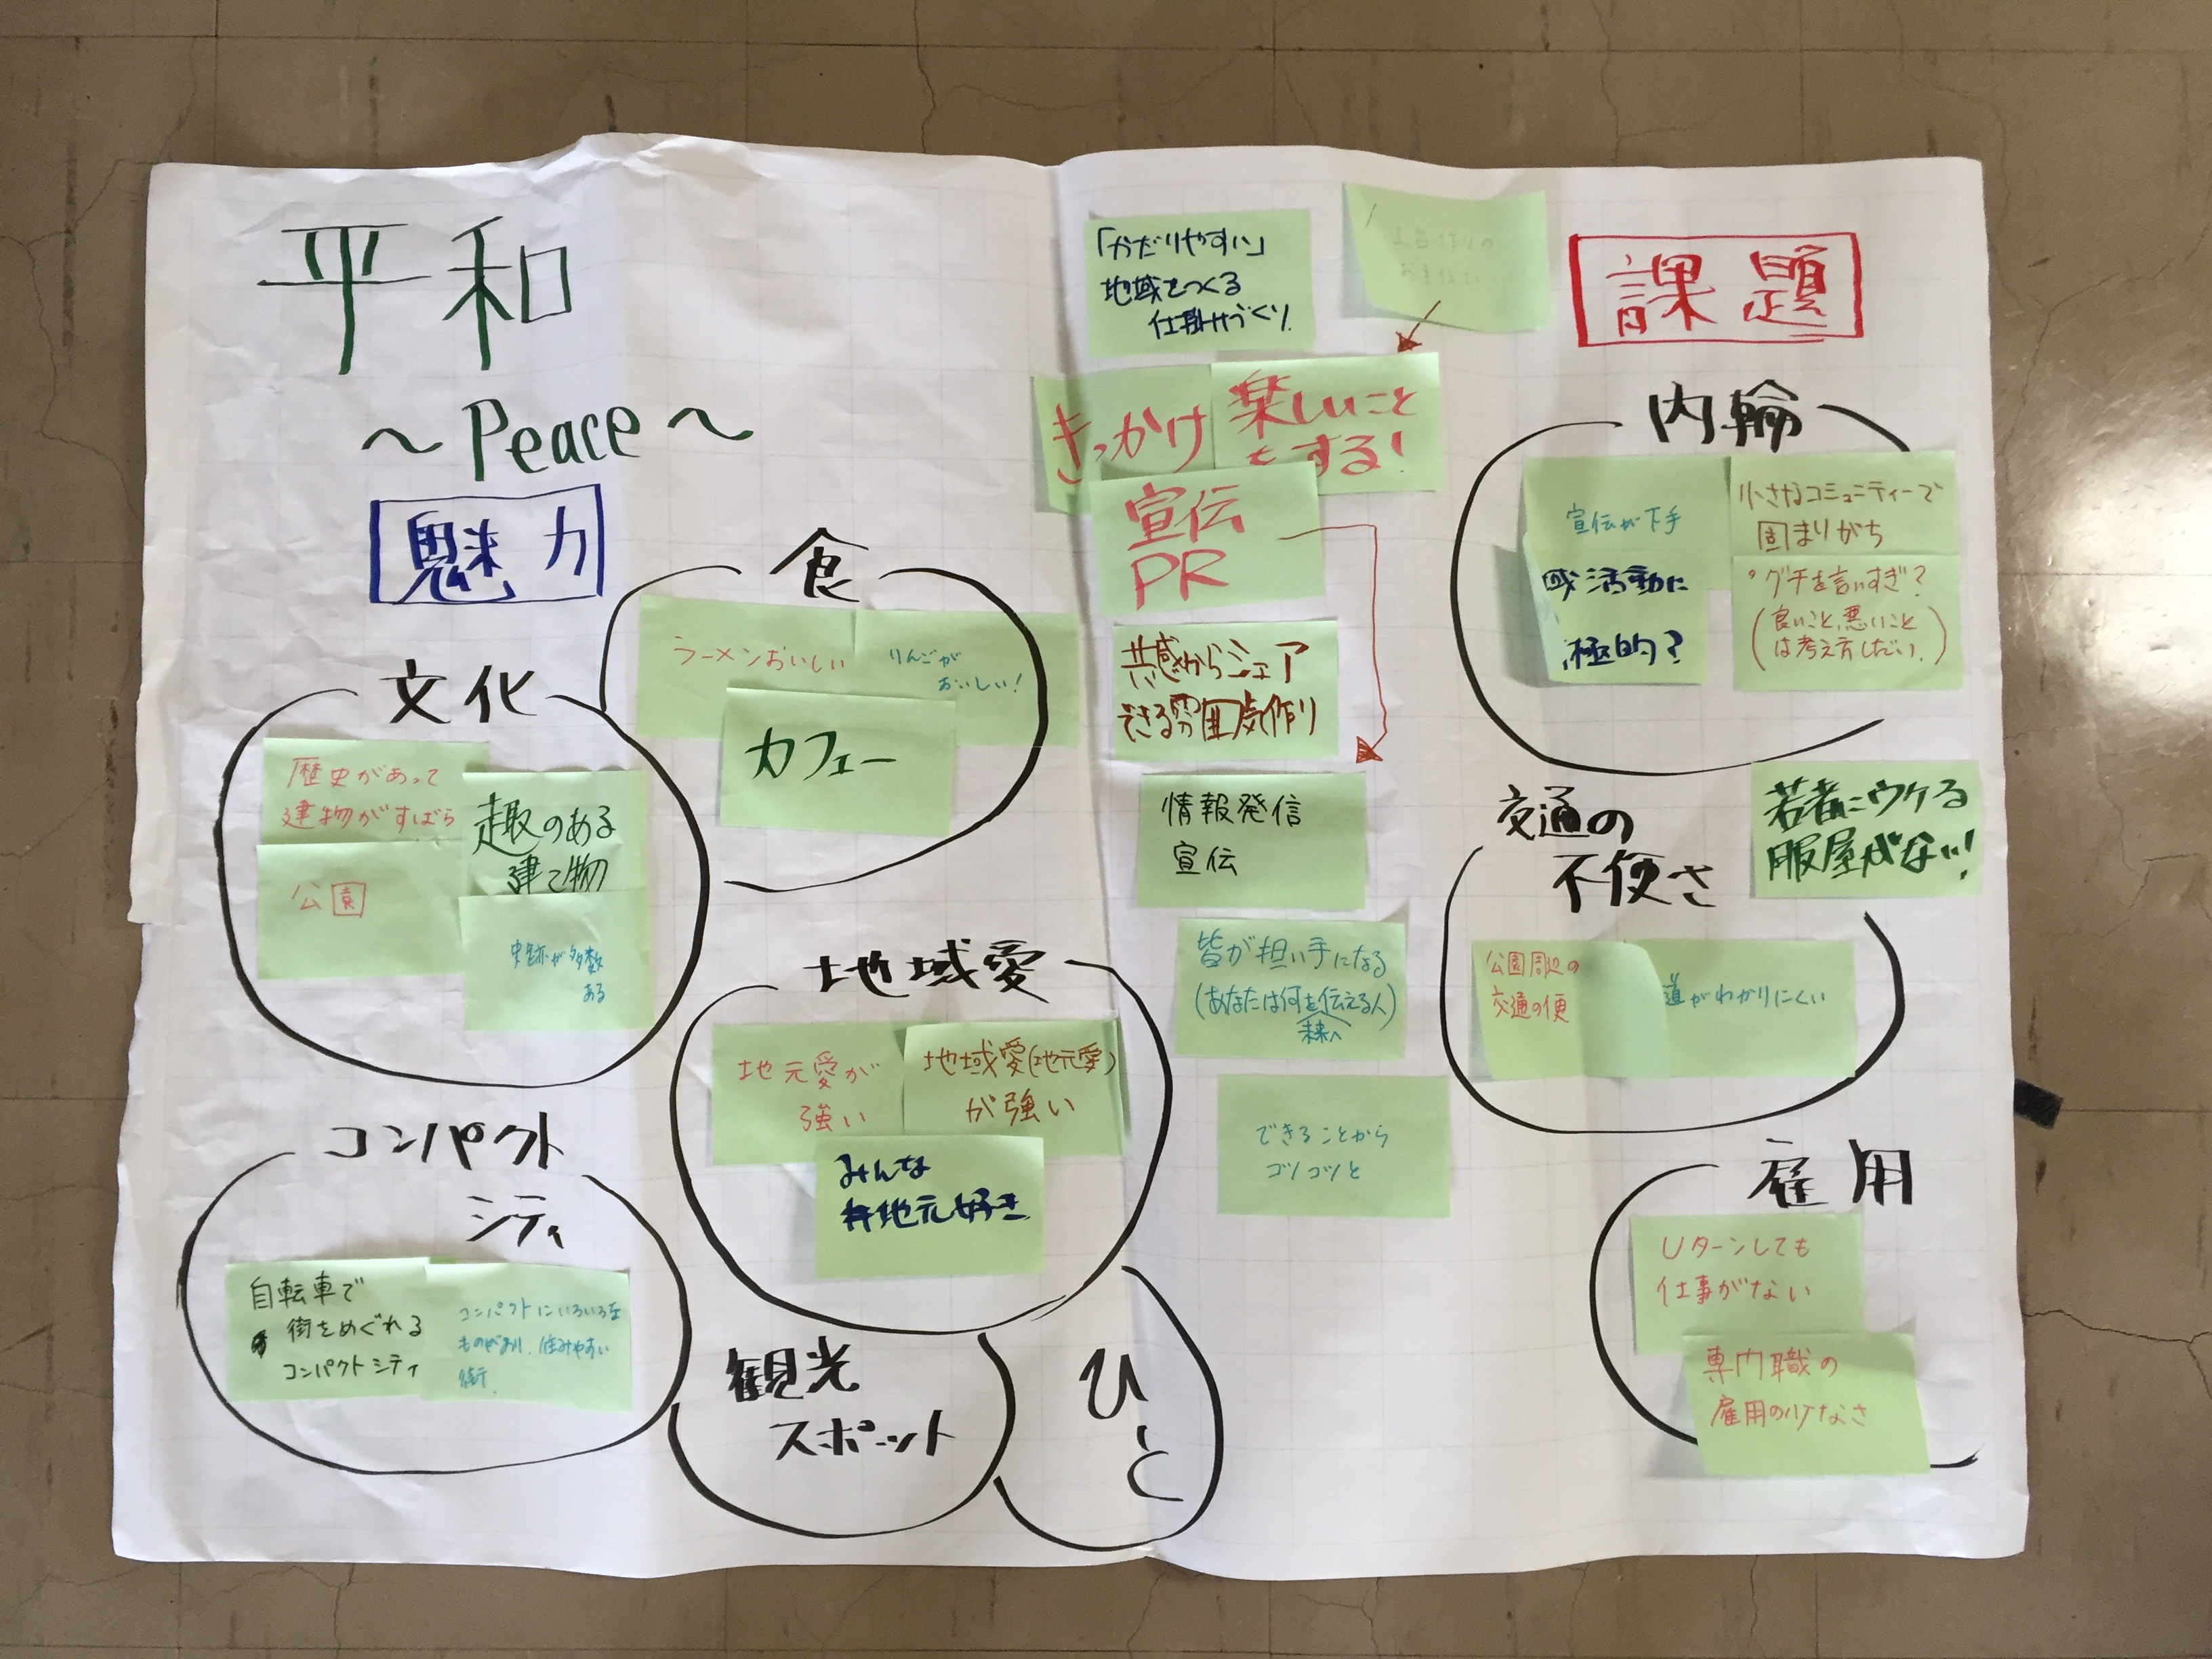 平和
～Peace～
魅力
食
ラーメンおいしい
りんごが
おいしい!
カフェー
文化
歴史があって
建物がすばら
趣のある
建て物
公園
史跡が多数
ある
地域愛
地元愛が
強い
地域愛(地元愛)
が強い
みんな
地元好き
コンパクト
シティ
自転車で
街をめぐれる
コンパクトシティ
コンパクトにいろいろな
ものがあり、住みやすい
街.
観光
スポット
ひと
「かだりやすい」
地域をつくる
仕掛けづくり
土台作りの
お手伝い
きっかけ
楽しいこと
をする!
宣伝
PR
共感からシェア
できる雰囲気作り
情報発信
宣伝
皆が担い手になる
(あなたは何を伝える人)
未来へ
できることから
コツコツと
課題
内輪
宣伝が下手
小さなコミュニティーで
固まりがち
域活動に
極的?
・グチを言いすぎ?
(良いこと、悪いこと
は考え方しだい。)
交通の
不便さ
若者にウケる
服屋がない!
公園周辺の
交通の便
道がわかりにくい
雇用
Uターンしても
仕事がない
専門職の
雇用の少なさ